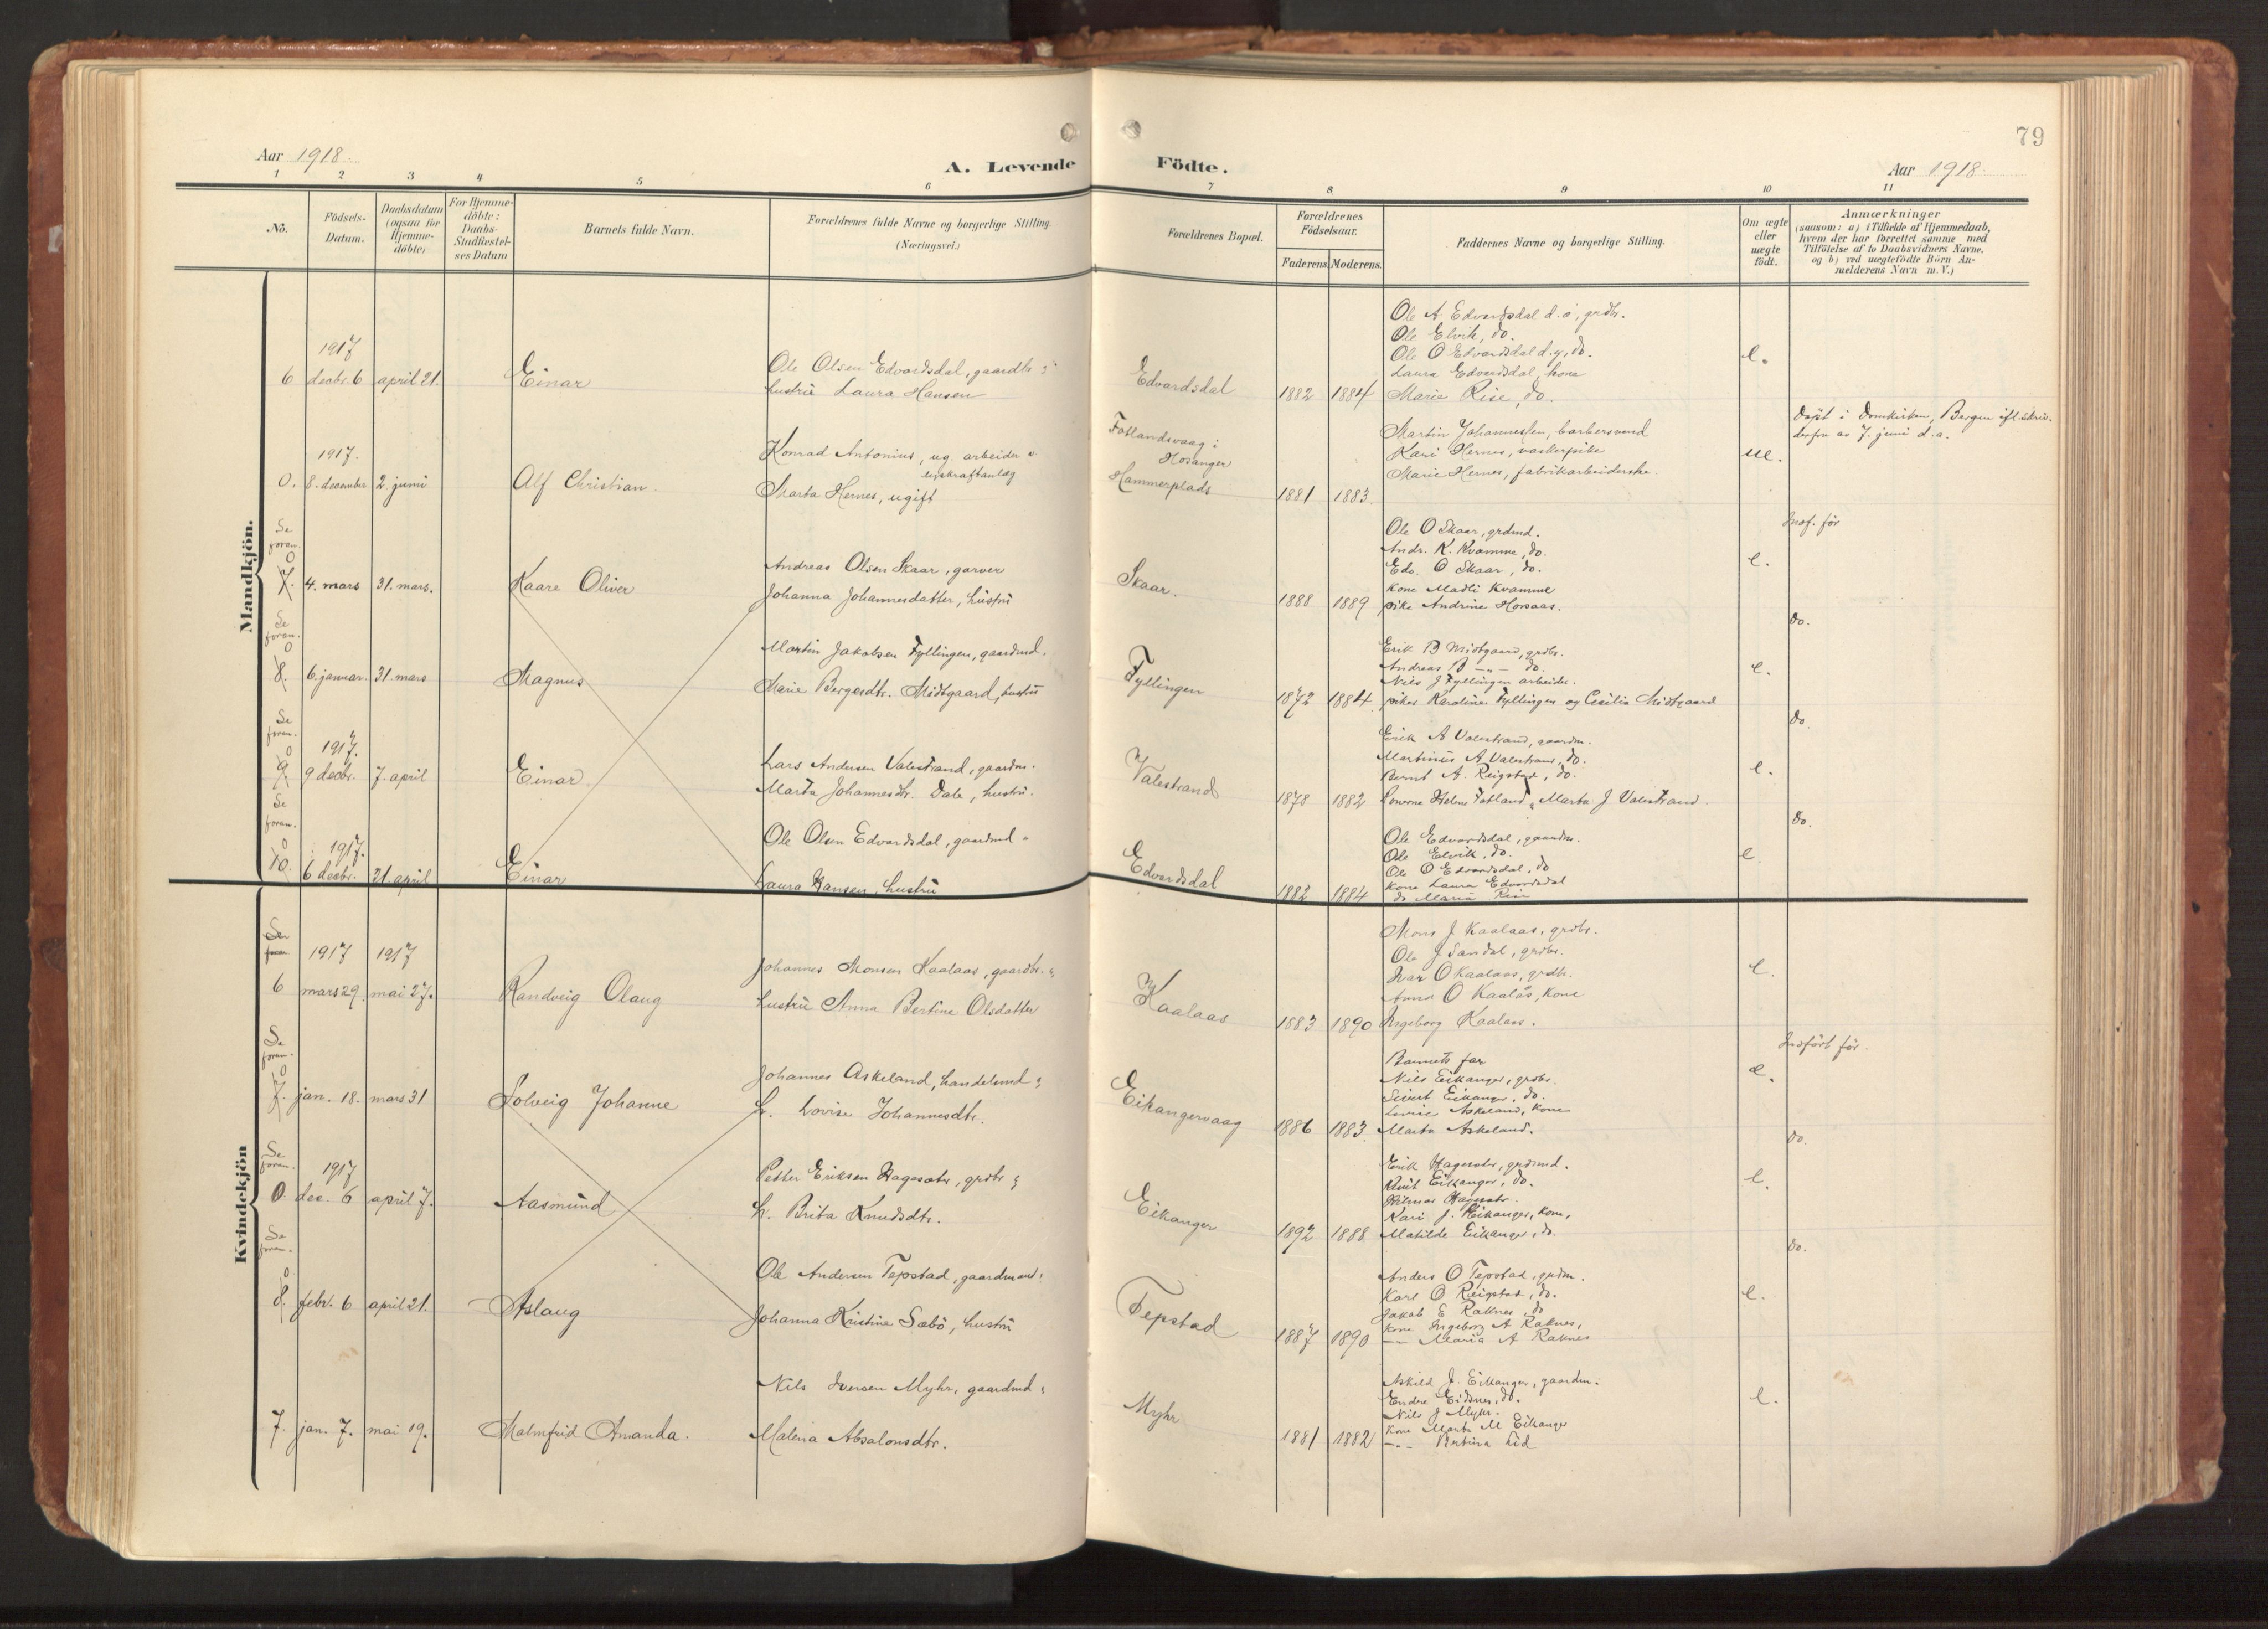 79
Aar 1918.
A. Levende Födte.
Aar 1918.
1 2 3 4 5 6 7 8 9 10 11
No. Födsels-Datum. Daabsdatum (ogsaa for Hjemmedöbte) For Hjemmedöbte: Daabs-Stadfæstelses Datum Barnets fulde Navn. Forældrenes fulde Navne og borgerlige Stilling. (Næringsvei.) Forældrenes Bopæl. Forældrenes Födselsaar. Faderens. Moderens. Faddernes Navne og borgerlige Stilling. Om ægte eller uægte födt. Anmærkninger (saasom: a) i Tilfælde af Hjemmedaab, hvem der har forrettet samme med Tilföielse af to Daabsvidners Navne, og b) ved uægtefödte Börn Anmelderens Navn m. V.)
Mandkjön.
1917
6 decbr. 6 april 21. Einar
Ole Olsen Edvardsdal, gaardbr.
hustru Laura Hansen
Edvardsdal 1882 1884
Ole A Edvardsdal d. æ, grdbr.
Ole Elvik, do.
Ole O Edvardsdal d. y, do.
Laura Edvardsdal, kone
Marie Rise, do.
e.
1917.
0. 8. december 2. juni Alf Christian.
Konrad Antonius, ug. arbeider
Marta Hernes, ugift
Fotlandsvaag i
Hosanger
Hammerplads
1881 1883
Martin Johannessen, barbersvend
Kari Hernes, vaskerpike
Marie Hernes, fabrikarbeiderske.
ue.
Döpt i Domkirken, Bergen ifl. skri-
av 7. juni d. a.
Se foran.
0 7. 4. mars 31. mars. Kaare Oliver
Andreas Olsen Skaar, garver
Johanna Johannesdatter, hustru
Skaar. 1888 1889
Ole O Skaar, grdmd.
Andr. K. Kvamme, do.
Edv. O Skaar, do.
kone Madli Kvamme
pike Andrine Horsaas.
e.
Indf. för
Se foran.
0 8. 6. januar. 31. mars Magnus
Martin Jakobsen Fyllingen, gaardmd.
Marie Bergesdtr. Midtgaard, hustru
Fyllingen 1872 1884
Erik B Midtgaard, grdbr.
Andreas B —"— do.
Nils J Fyllingen arbeider.
piker Karoline Fyllingen og Cecilie Midtgaard
e.
do.
Se foran.
1917.
0 9. 9 decbr. 7. april Einar
Lars Andersen Valestrand, gaardm.
Marta Johannesdtr. Dale, hustru.
Valestrand 1878 1882
Erik A Valestrand, gaardm.
Martinus A Valestrand, do.
Bernt A. Reigstad, do.
Konerne Helene Fotland, Marta J Valestrand.
e.
do.
Se foran.
1917.
0 10. 6 decbr. 21. april Einar
Ole Olsen Edvardsdal, gaardmd
Laura Hansen, hustru
Edvardsdal 1882 1884
Ole Edvardsdal, gaardm.
Ole Elvik, do.
Ole O Edvardsdal, do
kone Laura Edvardsdal
do Maria Rise
e.
do.
Kvindekjön
Se foran
1917 1917
6 mars 29 mai 27. Randveig Olaug
Johannes Monsen Kaalaas, gaardbr.
hustru Anna Bertine Olsdatter
Kaalaas 1883 1890
Mons J Kaalaas, grdbr.
Ole J Sandal, grdbr.
Ivar O Kaalaas, grdbr.
Anna O Kaalås, kone
Ingeborg Kaalaas.
e.
Se foran.
0 7. jan. 18. mars 31 Solveig Johanne
Johannes Askeland, handelsmd
h. Lovise Johannesdtr.
Eikangervaag 1886 1883
Barnets far
Nils Eikanger, grdbr.
Sivert Eikanger, do.
Lovise Askeland, kone
Marta Askeland.
e.
Indfört för.
Se foran.
1917
0. dec. 6 april 7. Aasmund
Petter Eriksen Hagesæter, grdbr
h. Brita Knudsdtr.
Eikanger 1892 1888
Erik Hagesæter, grdmd.
Knut Eikanger, do.
Hilmar Hagesæter.
Kari J. Eikanger, kone,
Matilde Eikanger, do.
e.
do.
Se foran.
0 8. febr. 6 april 21. Aslaug
Ole Andersen Tepstad, gaardmand
Johanna Kristine Sæbö, hustru
Tepstad 1887 1890
Anders O Tepstad, grdm.
Karl O Reigstad, do.
Jakob E Raknes, do
kone Ingeborg A Raknes,
—"— Maria A Raknes
e.
do.
7. jan. 7. mai 19. Malmfrid Amanda.
Nils Iversen Myhr, gaardmd
Malena Absalonsdtr.
Myhr 1881 1882
Askild J. Eikanger, gaardm.
Endre Eidsnes, do.
Nils J Myhr.
kone Marta M Eikanger
—"— Bertina Lid
e.